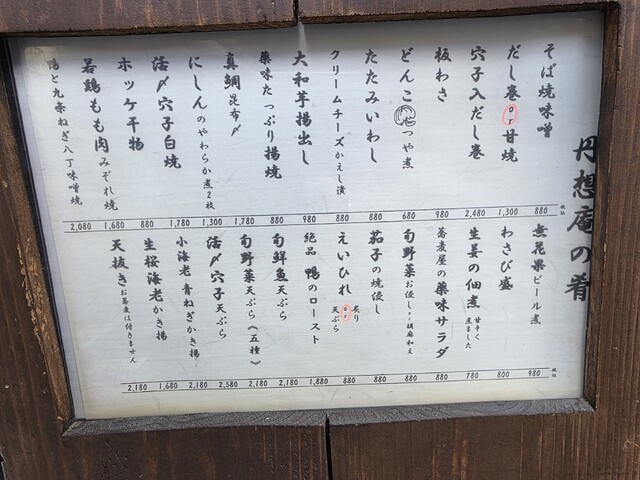 丹想庵の肴
そば焼味噌
だし巻 or 甘焼
穴子入だし巻
板わさ
どんこ つや煮
たたみいわし
クリームチーズかえし漬
大和芋揚出し
薬味たっぷり揚焼
真鯛昆布〆
にしんのやわらか煮2枚
活〆穴子白焼
ホッケ干物
若鶏もも肉みぞれ焼
鴨と九条ねぎ八丁味噌焼
2,080 1,680 880 1,780 1,300 1,780 880 980 880 880 680 980 2,480 1,300 880 税込
無花果ビール煮
わさび盛
生姜の佃煮 甘辛く煮ました
蕎麦屋の薬味サラダ
旬野菜お浸し or 胡麻和え
茄子の焼浸し
えいひれ 炙り or 天ぷら
絶品 鴨のロースト
旬鮮魚天ぷら
旬野菜天ぷら《五種》
活〆穴子天ぷら
小海老 青ねぎかき揚
生桜海老かき揚
天抜き お蕎麦は付きません
2,180 1,680 2,180 2,580 2,180 2,180 1,880 880 880 880 880 780 800 980 税込